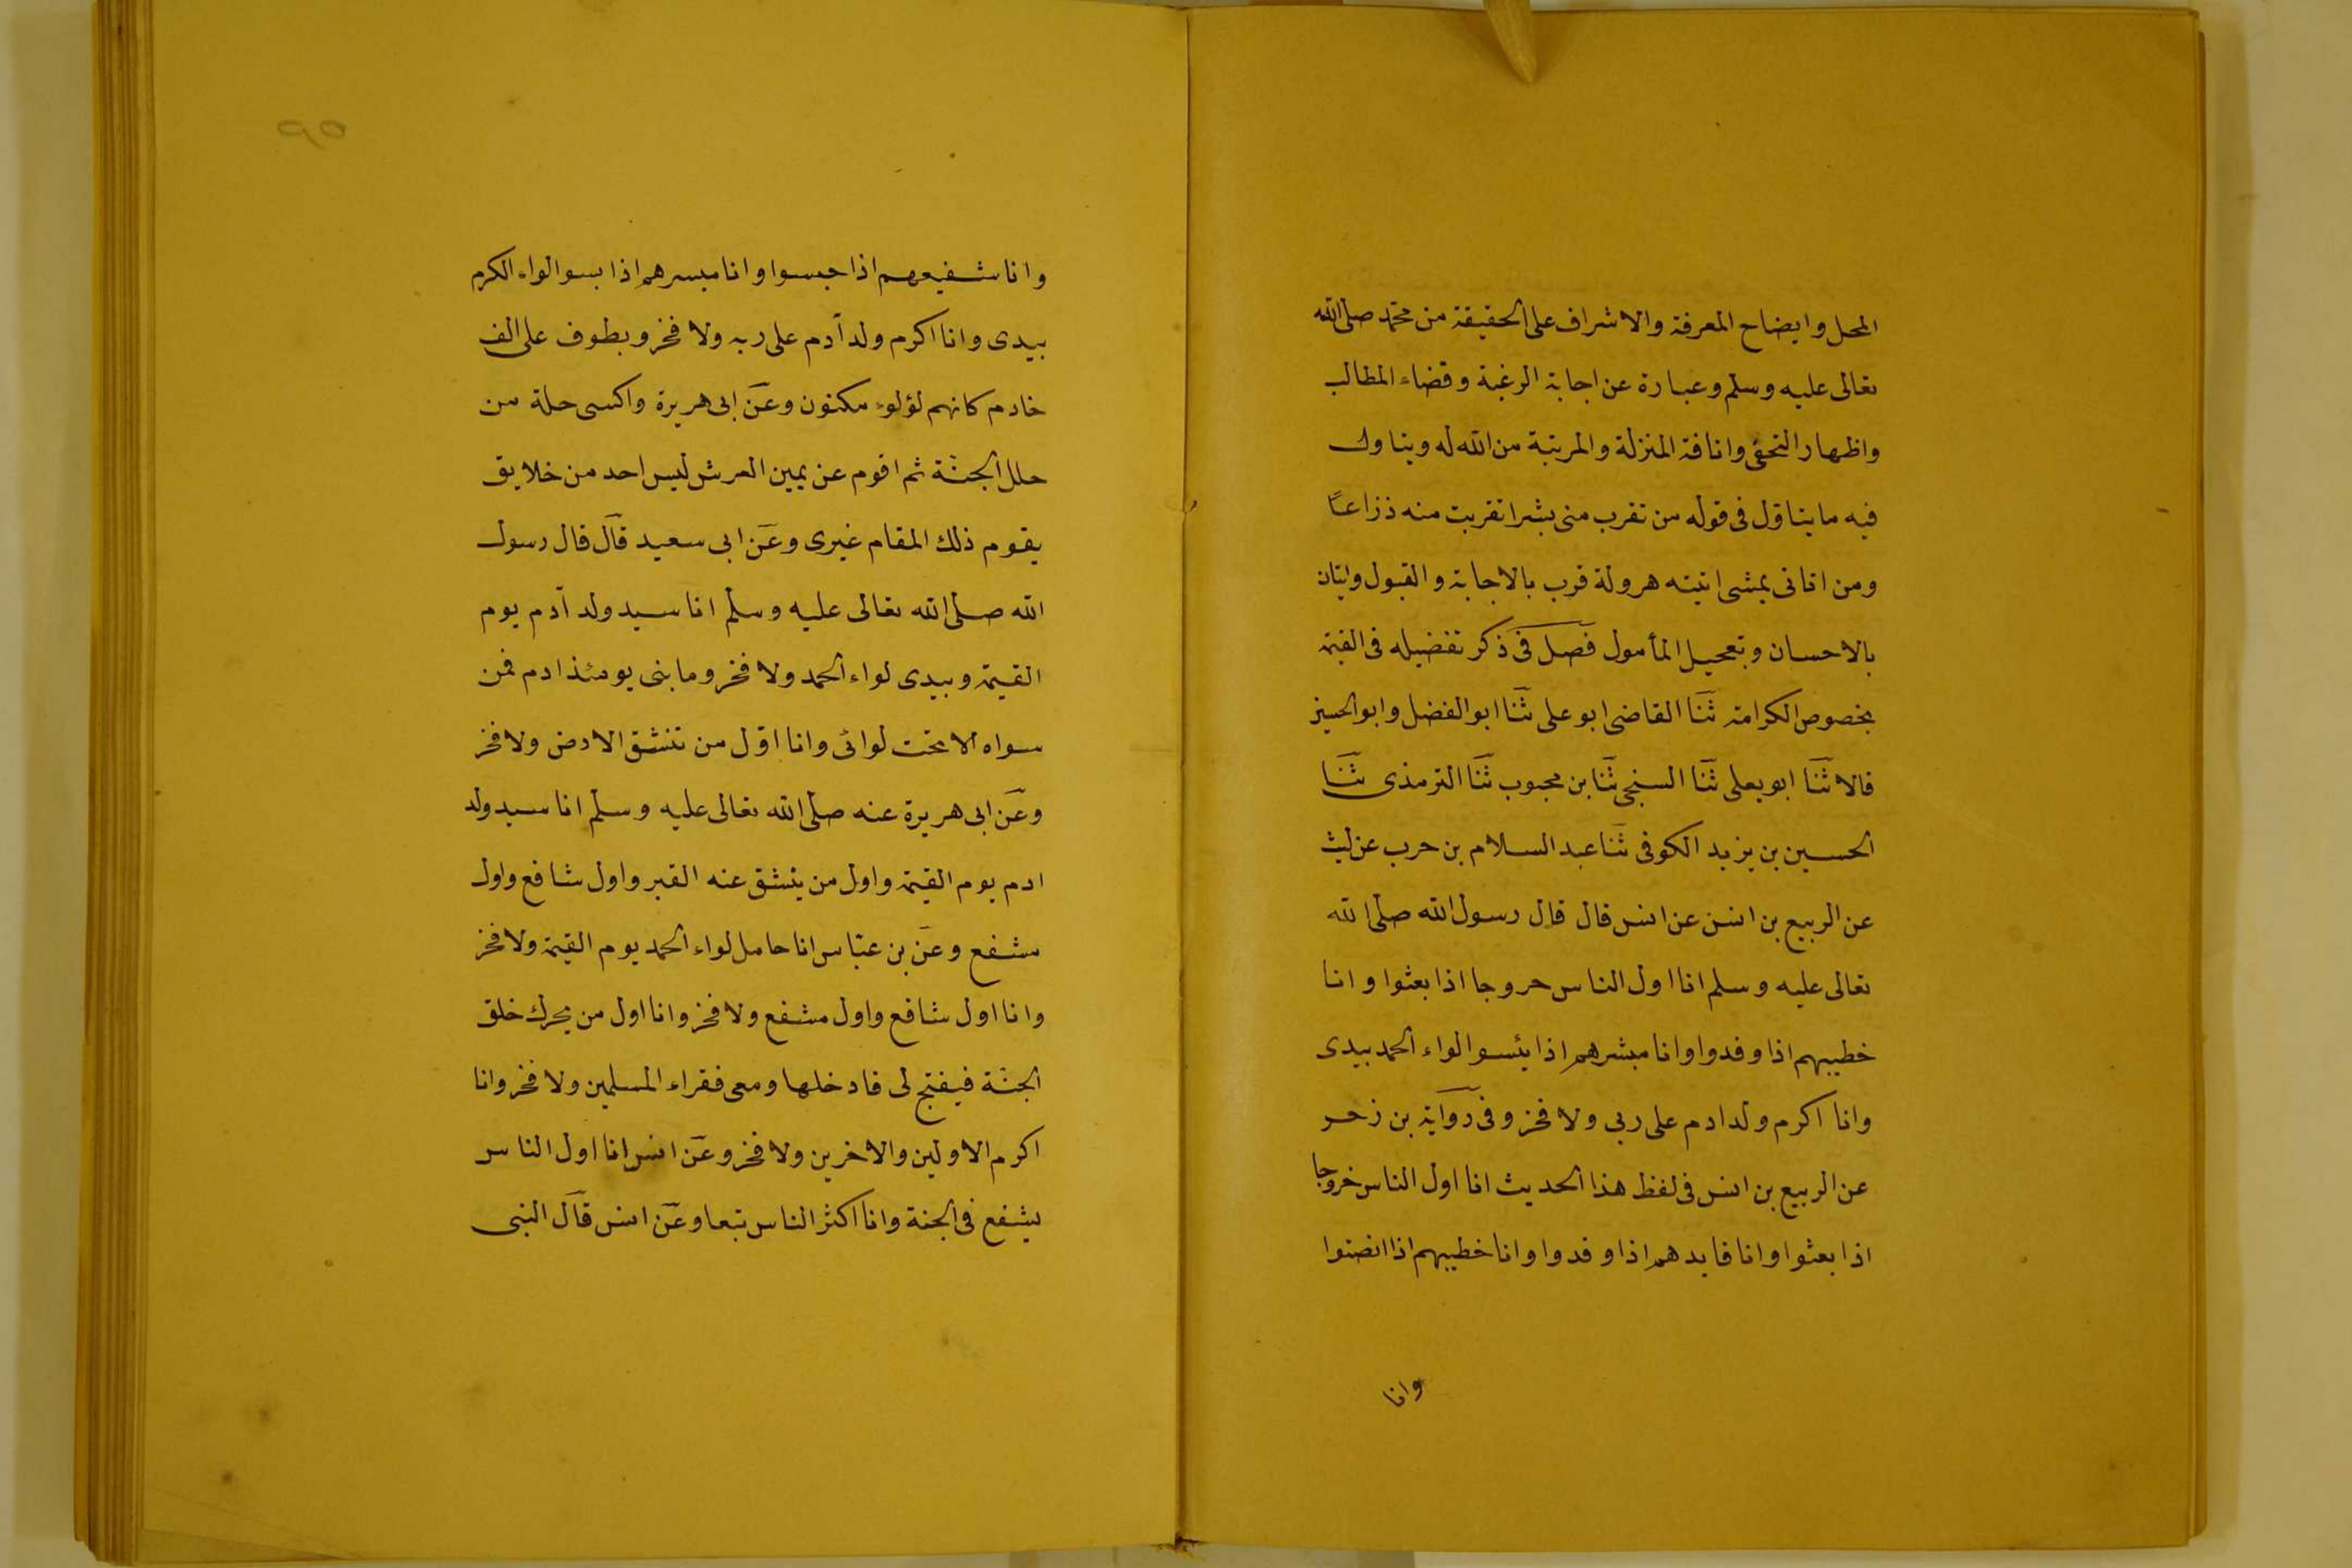 المحل وايضاح المعرفة والاشراف على الحقيقة من محمد صلى الله
تعالى عليه وسلم وعبارة عن اجابة الرغبة وقضاء المطالب
واظهار التحفى وانافة المنزلة والمرتبة من الله له ويتاول
فيه ما يتاول فى قوله من تقرب منى بشرا تقربت منه ذراعًا
ومن اتانى يمشى اتيته هرولة قرب بالاجابة والقبول واتيان
بالاحسان وتعجيل المأمول فصل فى ذكر تفضيله فى القيمة
بخصوص الكرامة ثنا القاضى ابو على ثنا ابو الفضل وابو الحسين
قالا ثنا ابو يعلى ثنا السنجى ثنا بن محبوب ثنا الترمذى ثنا
الحسين بن يزيد الكوفى ثنا عبد السلام بن حرب عن ليث
عن الربيع بن انس عن انس قال قال رسول الله صلى الله
تعالى عليه وسلم انا اول الناس حروجا اذا بعثوا وانا
خطيبهم اذا وفدوا وانا مبشرهم اذا يئسوا لواء الحمد بيدى
وانا اكرم ولد ادم على ربى ولا فخر وفى رواية بن زحر
عن الربيع بن انس فى لفظ هذا الحديث انا اول الناس خروجا
اذا بعثوا وانا قايدهم اذا وفدوا وانا خطيبهم اذا انصتوا
وانا
٩٥
وانا شفيعهم اذا حبسوا وانا مبسرهم اذا بسوا لواء الكرم
بيدى وانا اكرم ولد آدم على ربه ولا فخر ويطوف على الف
خادم كانهم لؤلوء مكنون وعن ابى هريرة واكسى حلة من
حلل الجنة ثم اقوم عن يمين العرش ليس احد من خلايق
يقوم ذلك المقام غيرى وعن ابى سعيد قال قال رسول
الله صلى الله تعالى عليه وسلم انا سيد ولد آدم يوم
القيمة وبيدى لواء الحمد ولا فخر وما بنى يومئذ ادم فمن
سواه الا تحت لوائى وانا اول من تنشق الارض ولا فخر
وعن ابى هريرة عنه صلى الله تعالى عليه وسلم انا سيد ولد
ادم يوم القيمة واول من ينشق عنه القبر واول شافع واول
مشفع وعن بن عباس انا حامل لواء الحمد يوم القيمة ولا فخر
وانا اول شافع واول مشفع ولا فخر وانا اول من يحرك خلق
الجنة فيفتح لى فادخلها ومعى فقراء المسلمين ولا فخر وانا
اكرم الاولين والاخرين ولا فخر وعن انس انا اول الناس
يشفع فى الجنة وانا اكثر الناس تبعا وعن انس قال النبى